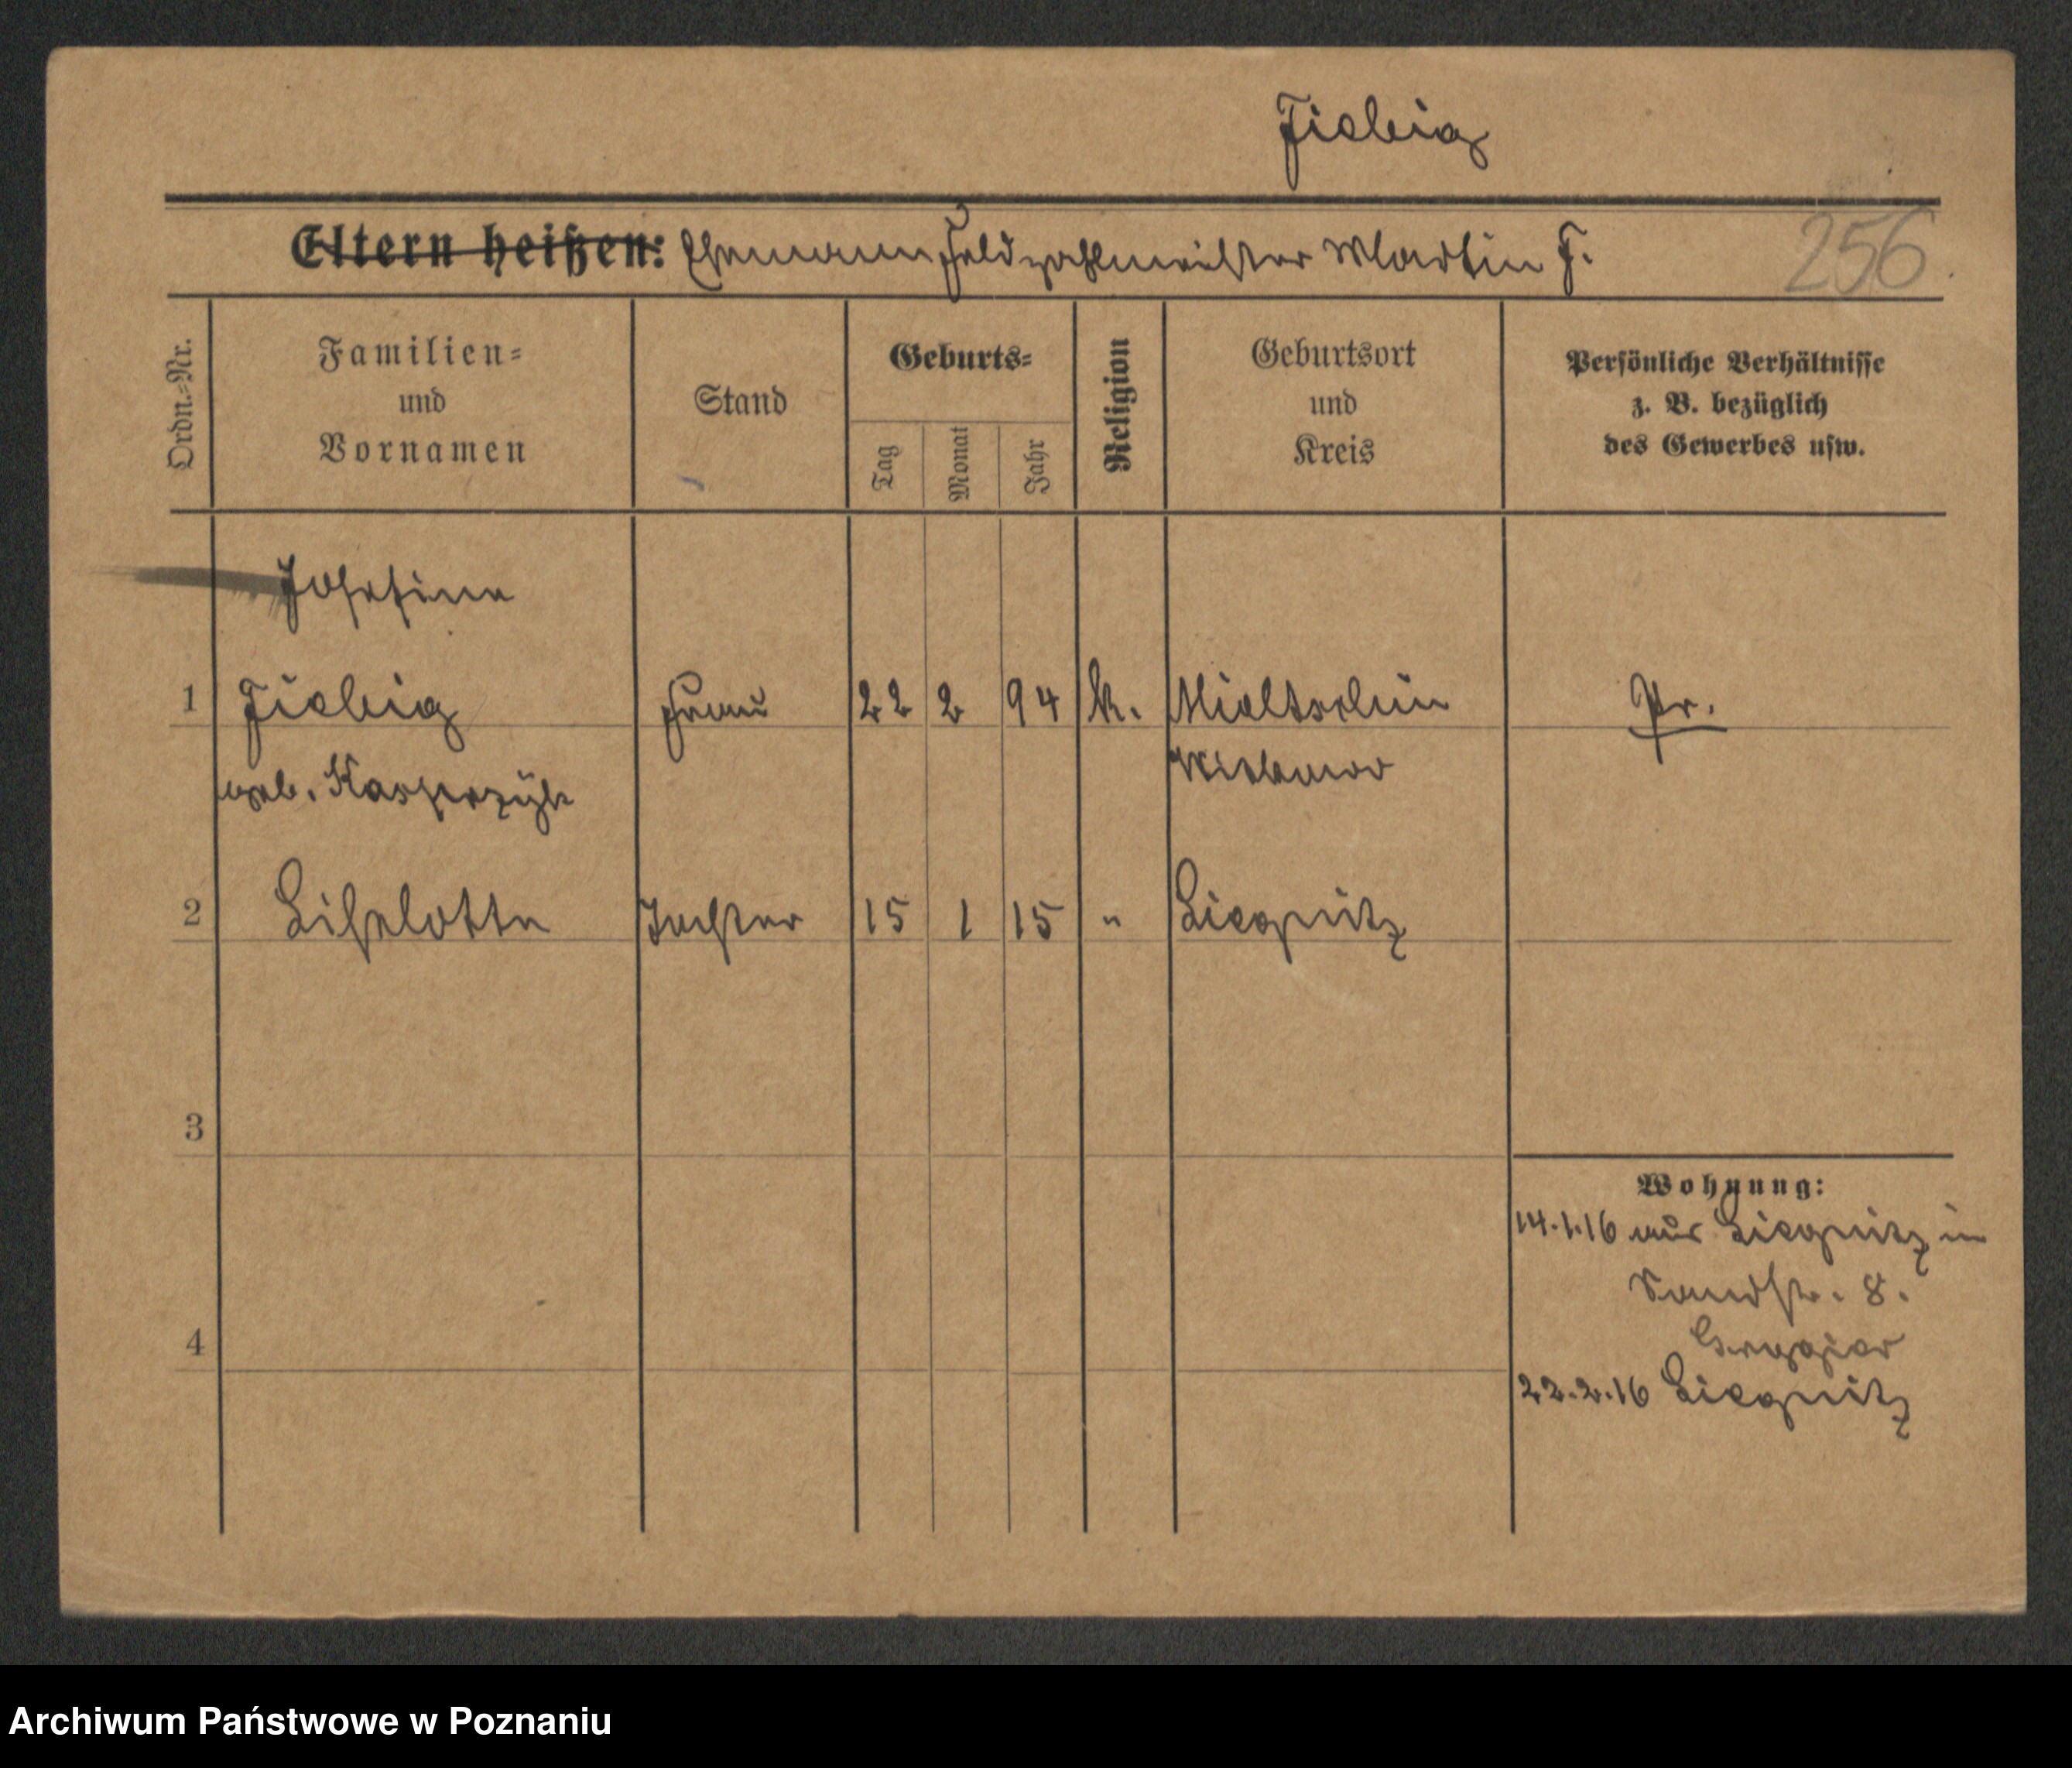 Fiebig
Eltern heißen: Ehemann Feldzahlmeister Martin F.
256
Ordn.-Nr.
Familien- und Vornamen
Stand
Geburts-
Tag
Monat
Jahr
Religion
Geburtsort und Kreis
Persönliche Verhältnisse z. B. bezüglich des Gewerbes usw.
Josefine
1 Fiebig Frau 22 2 94 k. Mieltschin Pr.
geb. Kasperzyk Witkowo
2 Liselotte Tochter 15 1 15 " Liegnitz
3
Wohnung:
14.1.16 aus Liegnitz in
Sandstr. 8.
4
22.2.16 Liegnitz
Archiwum Państwowe w Poznaniu